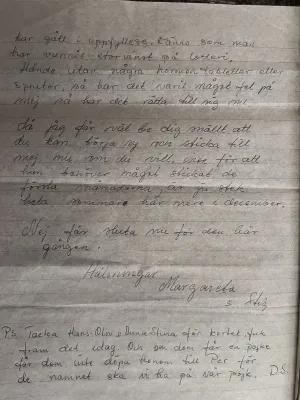 har gått i uppfyllelse. Känns som man
har vunnit storvinst på lotteri.
Hände utan några hormontabletter eller
sprutor, så har det varit något fel på
mej så har det rättat till sig nu.
Så jag får väl be dig snällt att
du kan börja sy och sticka till
mej nu, om du vill, inte för att
han behöver något stickat de
första månaderna är ju
heta sommaren här nere i december.
Nej får sluta nu för den här
gången.
Hälsningar
Margareta
o Stig
P.S. Tacka Hans-Olov o Anna-Stina för kortet, fick
fram det idag. Och om dom får en pojke
får dom inte döpa honom till Per för
de namnet ska vi ha på vår pojk. D.S.